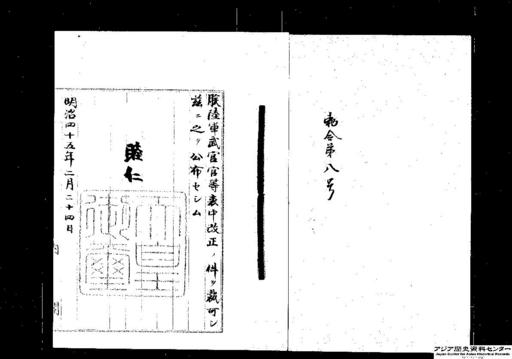 勅令第八号
朕陸軍武官官等表中改正ノ件ヲ裁可シ
茲ニ之ヲ公布セシム
睦仁
天皇御璽
明治四十五年二月二十四日
内閣
アジア歴史資料センター
Japan Center for Asian Historical Records